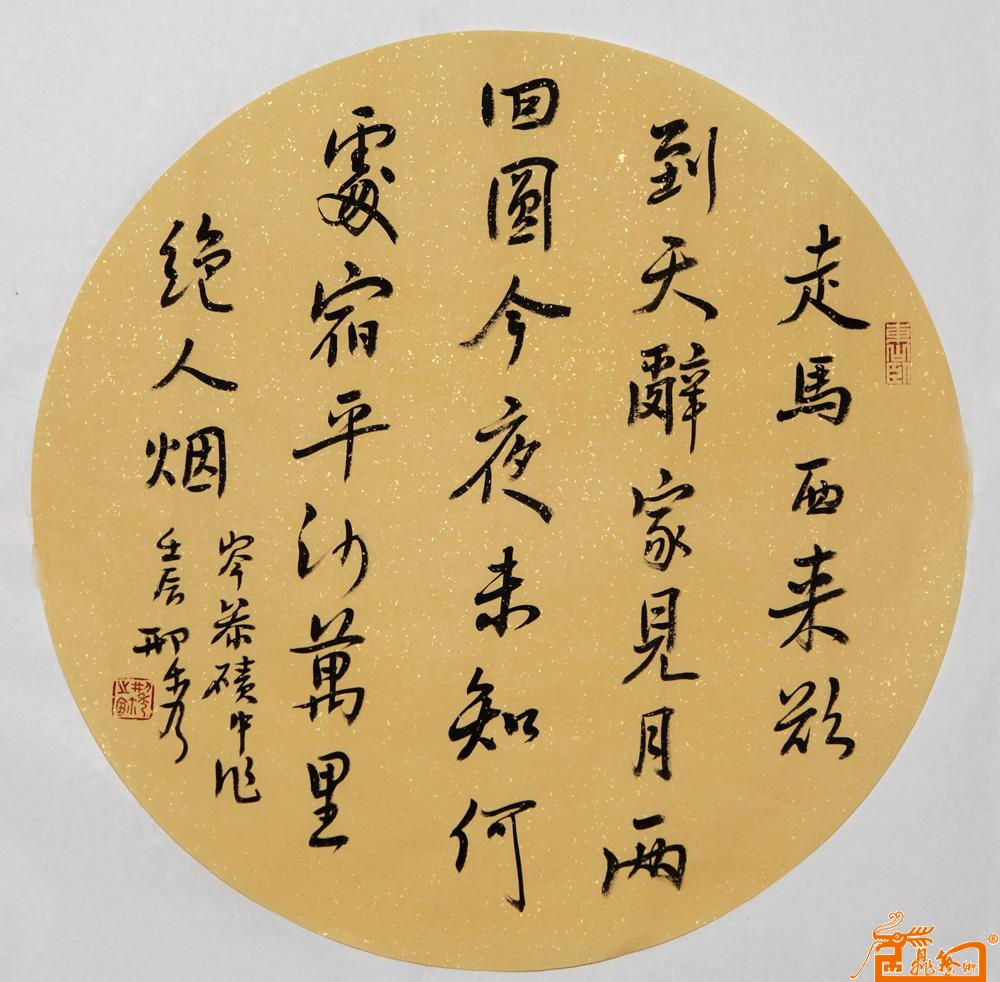 走馬西来欲
到天辭家見月两
回圓今夜未知何
處宿平沙萬里
絶人烟
岑参磧中作
壬辰邢秀